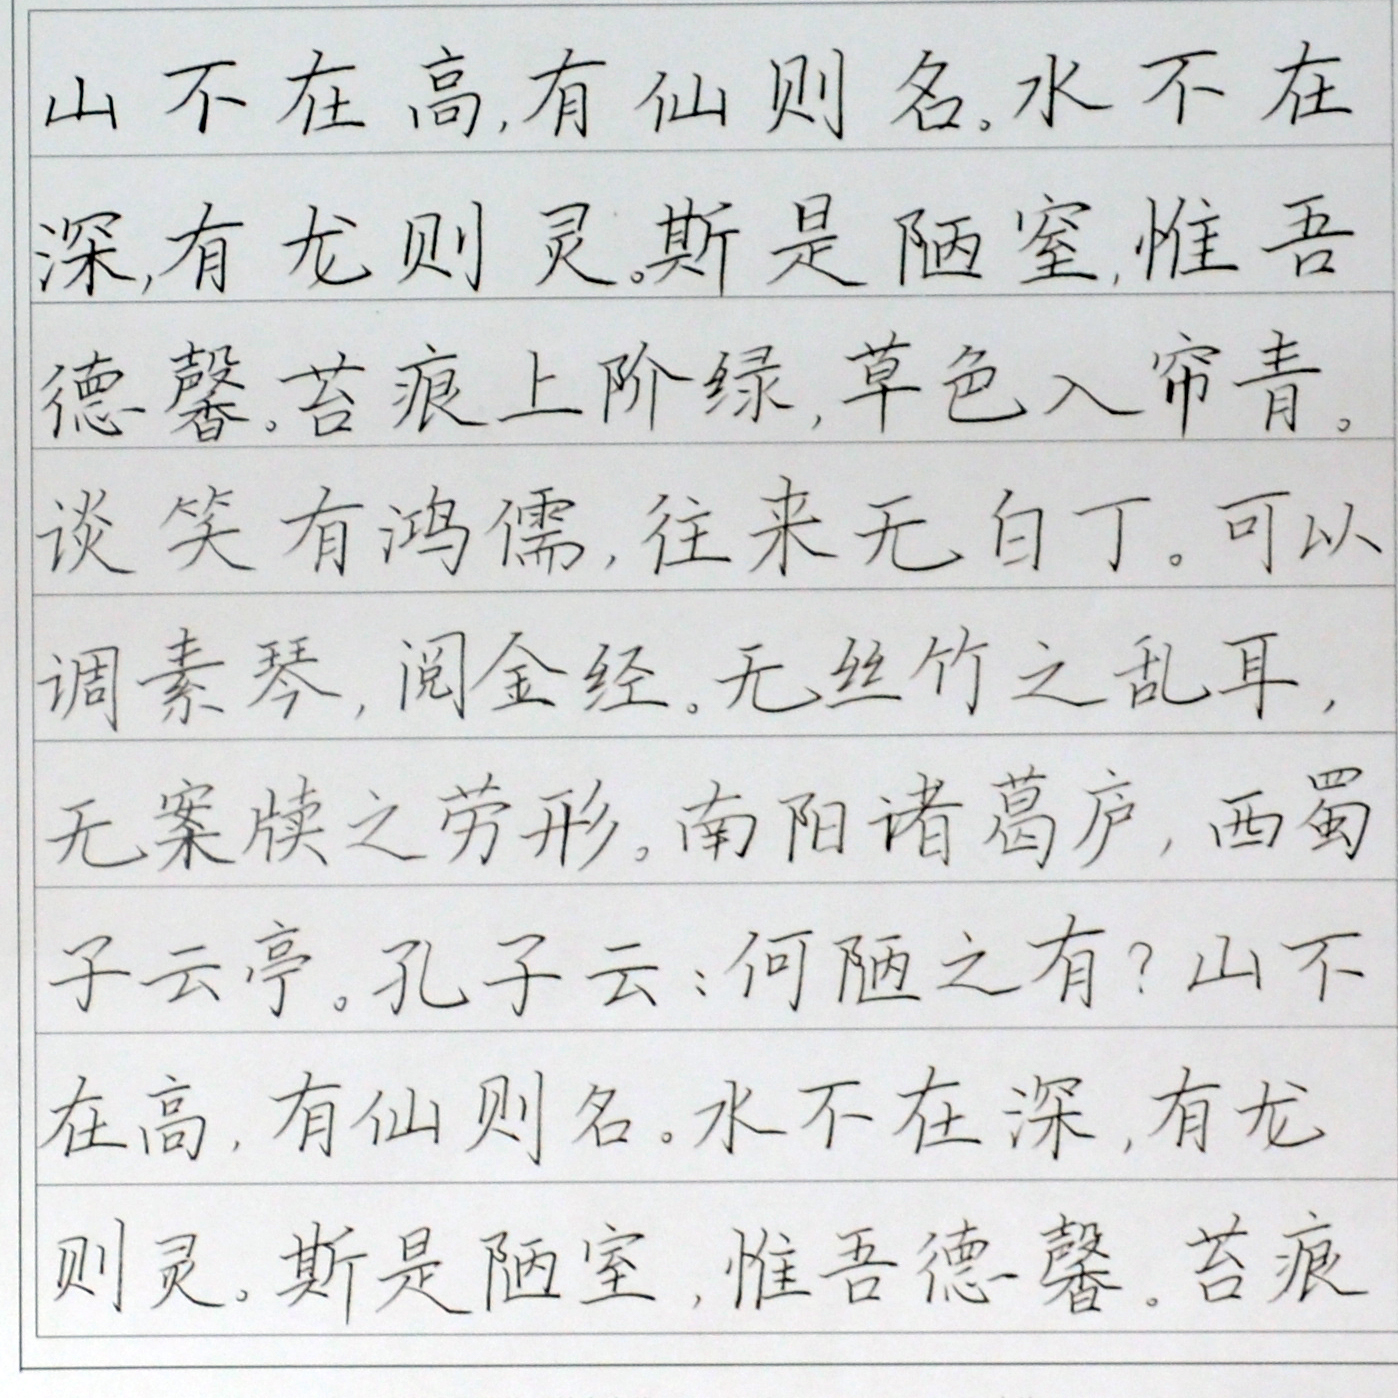 山不在高,有仙则名。水不在
深,有龙则灵。斯是陋室,惟吾
德馨。苔痕上阶绿,草色入帘青。
谈笑有鸿儒,往来无白丁。可以
调素琴,阅金经。无丝竹之乱耳,
无案牍之劳形。南阳诸葛庐,西蜀
子云亭。孔子云:何陋之有?山不
在高,有仙则名。水不在深,有龙
则灵。斯是陋室,惟吾德馨。苔痕